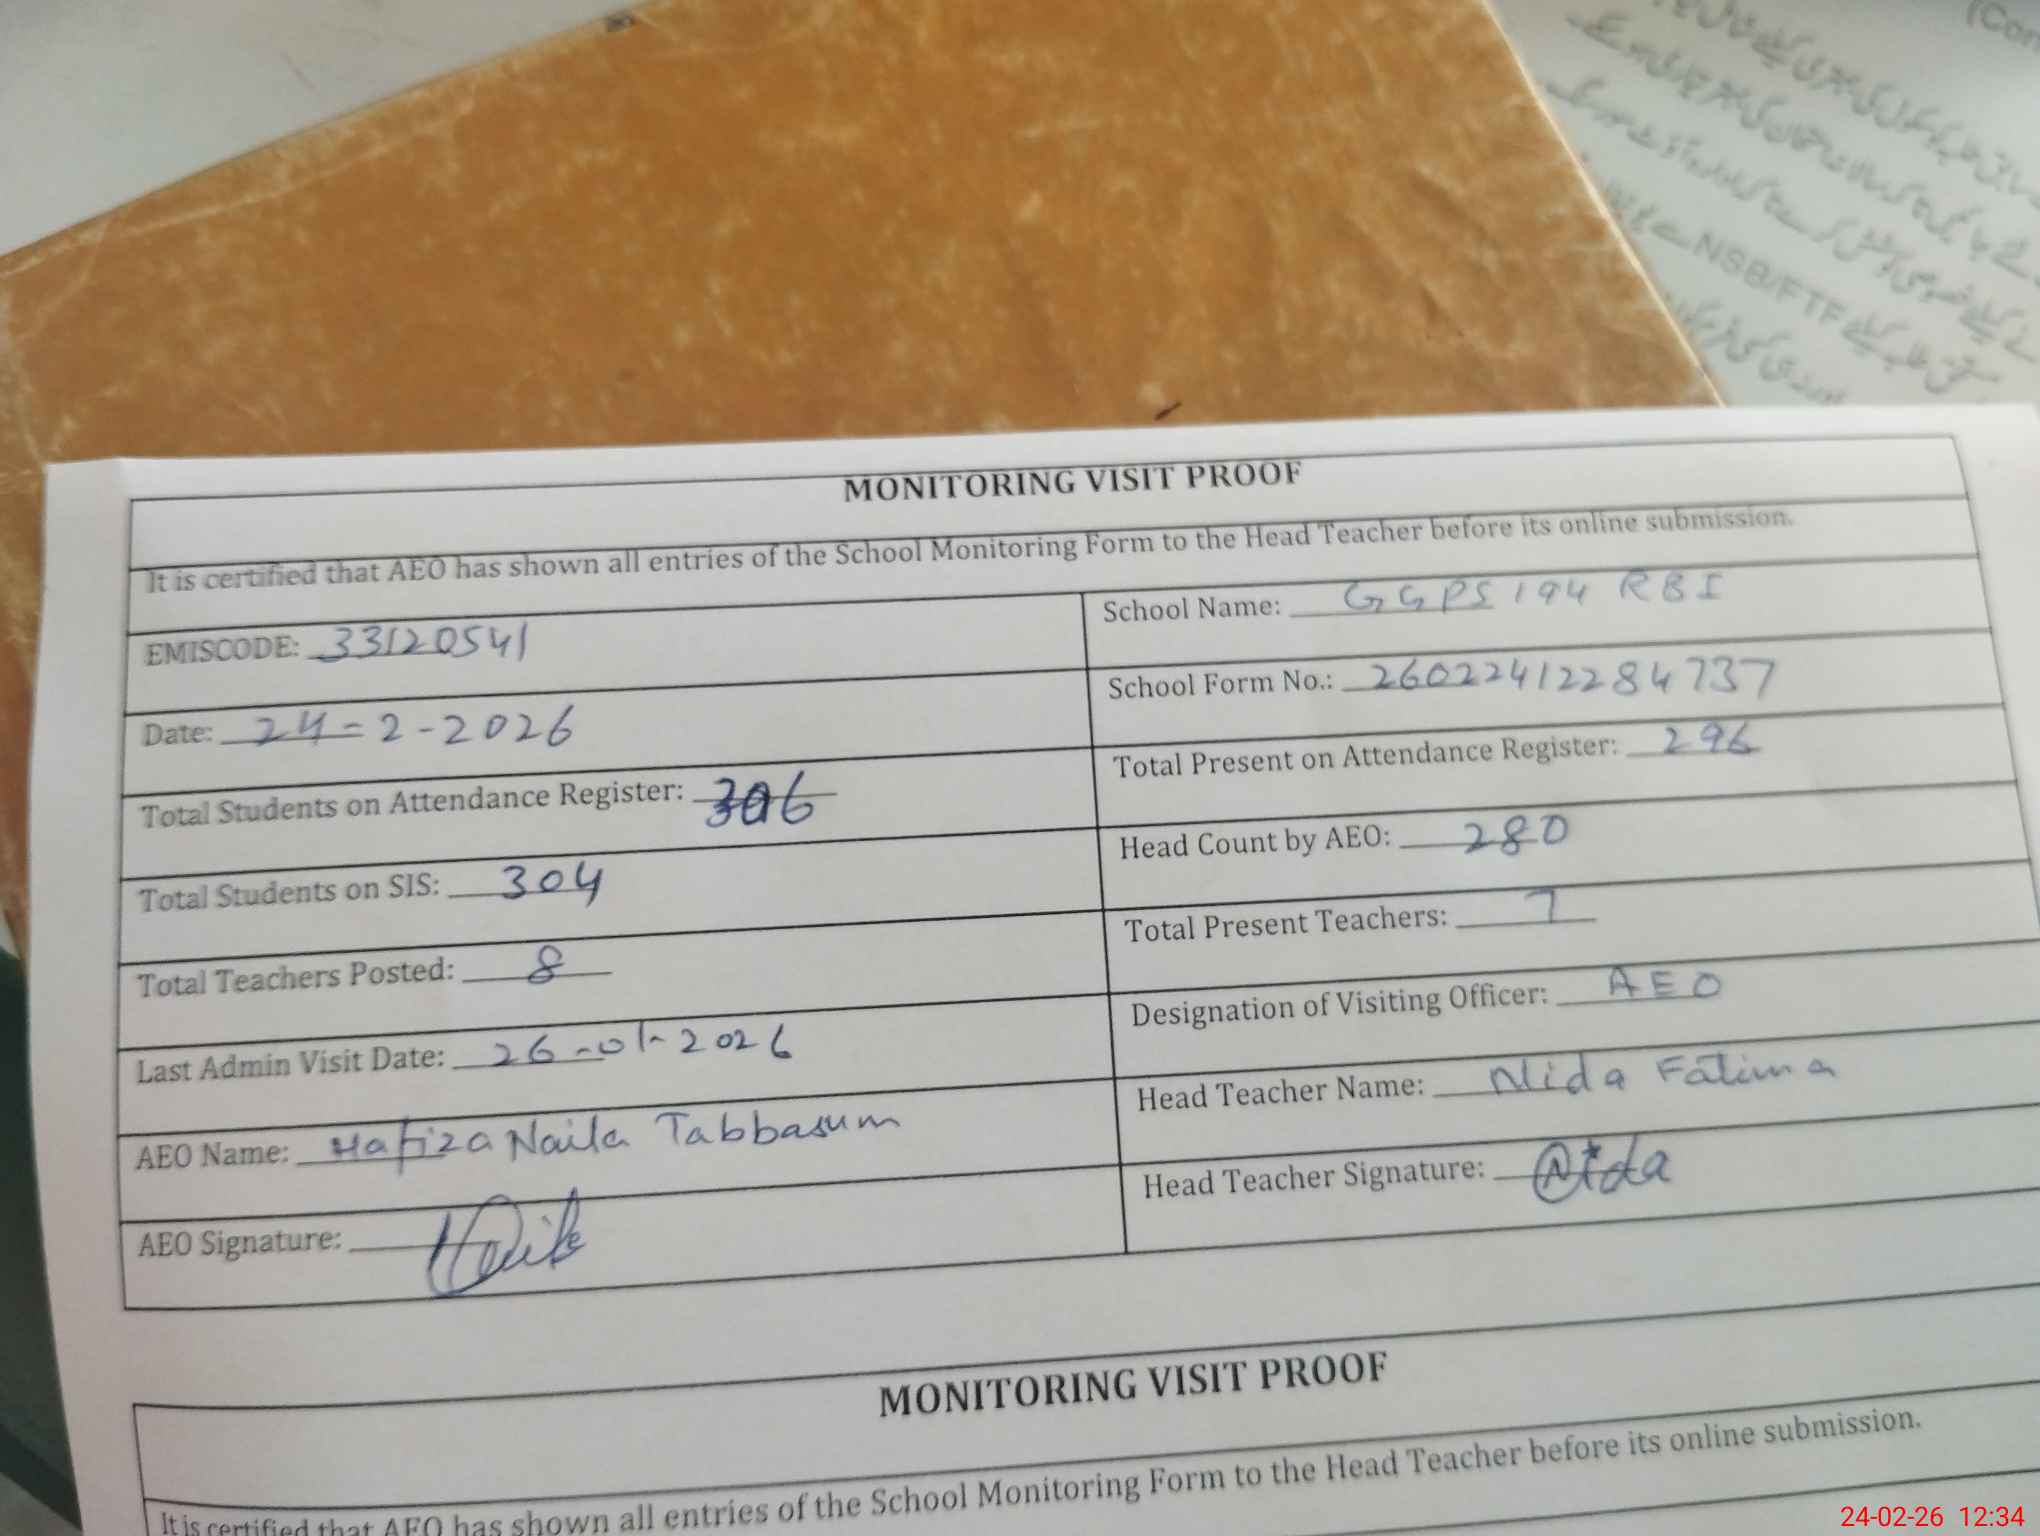 (Con
NSB/FTF
MONITORING VISIT PROOF
It is certified that AEO has shown all entries of the School Monitoring Form to the Head Teacher before its online submission.
EMISCODE: 33120541
School Name: GGPS 194 RBI
Date: 24-2-2026
School Form No.: 260224122284737
Total Students on Attendance Register: 306
Total Present on Attendance Register: 296
Total Students on SIS: 304
Head Count by AEO: 280
Total Teachers Posted: 8
Total Present Teachers: 7
Last Admin Visit Date: 26-01-2026
Designation of Visiting Officer: AEO
AEO Name: Hafiza Naila Tabbasum
Head Teacher Name: Nida Fatima
AEO Signature: Naila
Head Teacher Signature: Nida
MONITORING VISIT PROOF
It is certified that AEO has shown all entries of the School Monitoring Form to the Head Teacher before its online submission.
24-02-26 12:34